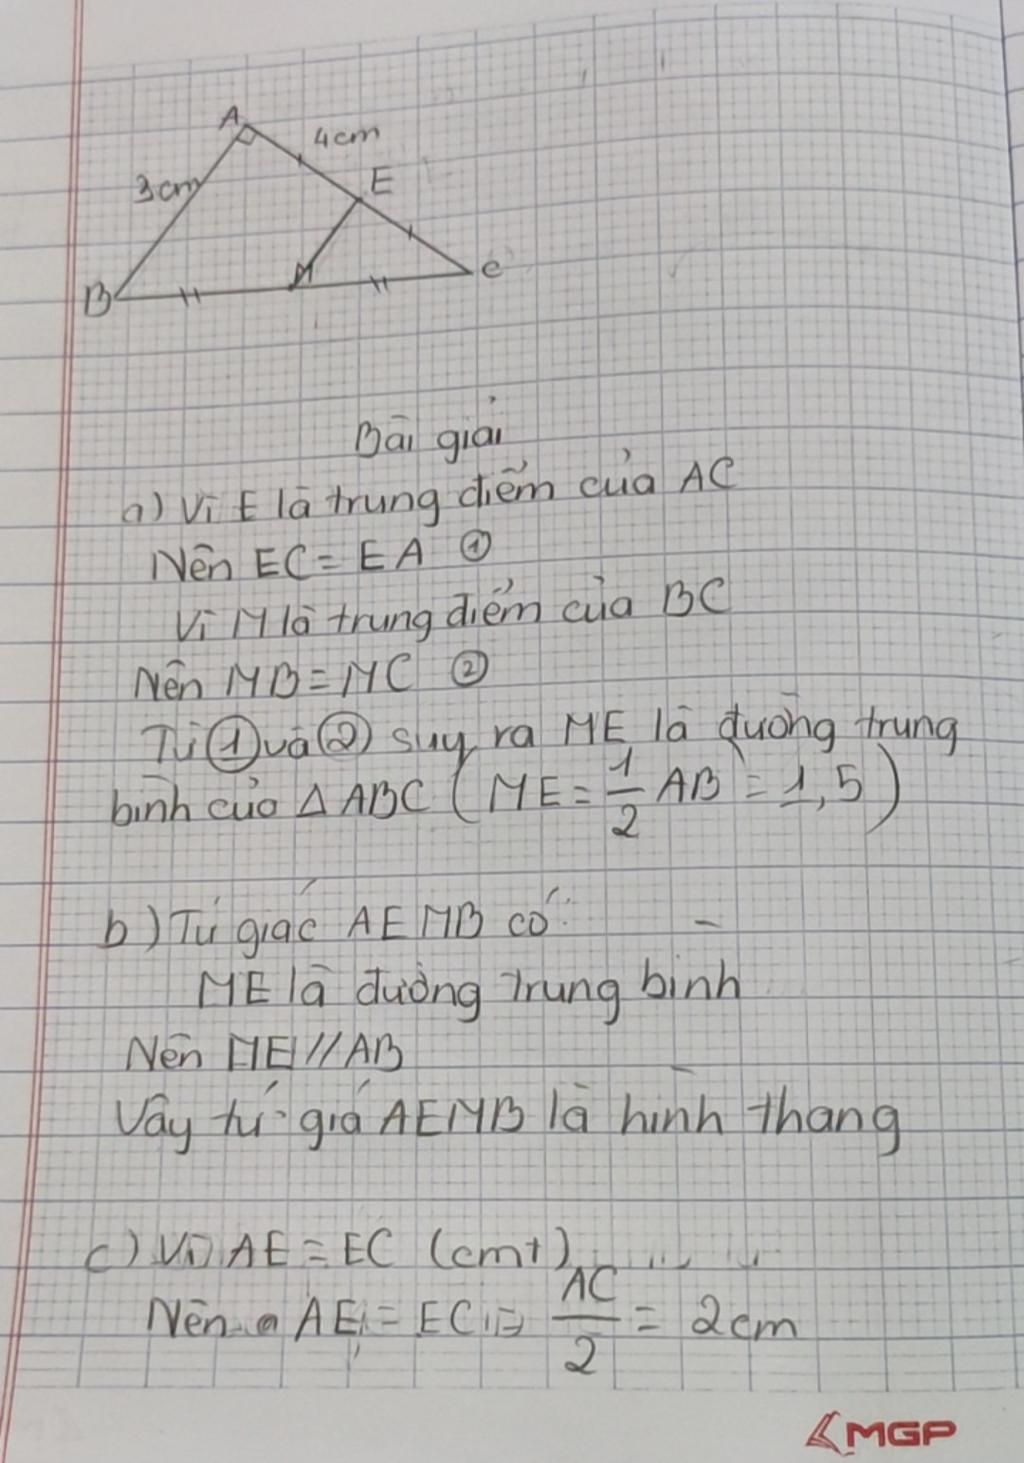 A
4cm
3cm
E
B
M
C
Bài giải
a) Vì E là trung điểm của AC
Nên EC = EA ①
Vì M là trung điểm của BC
Nên MB = MC ②
Từ ① và ② suy ra ME là đường trung
bình của Δ ABC ( ME = 1/2 AB = 1,5 )
b) Tứ giác AEMB có:
ME là đường trung bình
Nên ME // AB
Vậy tứ giá AEMB là hình thang
c) Vì AE = EC (cmt)
Nên AE = EC = AC/2 = 2cm
MGP